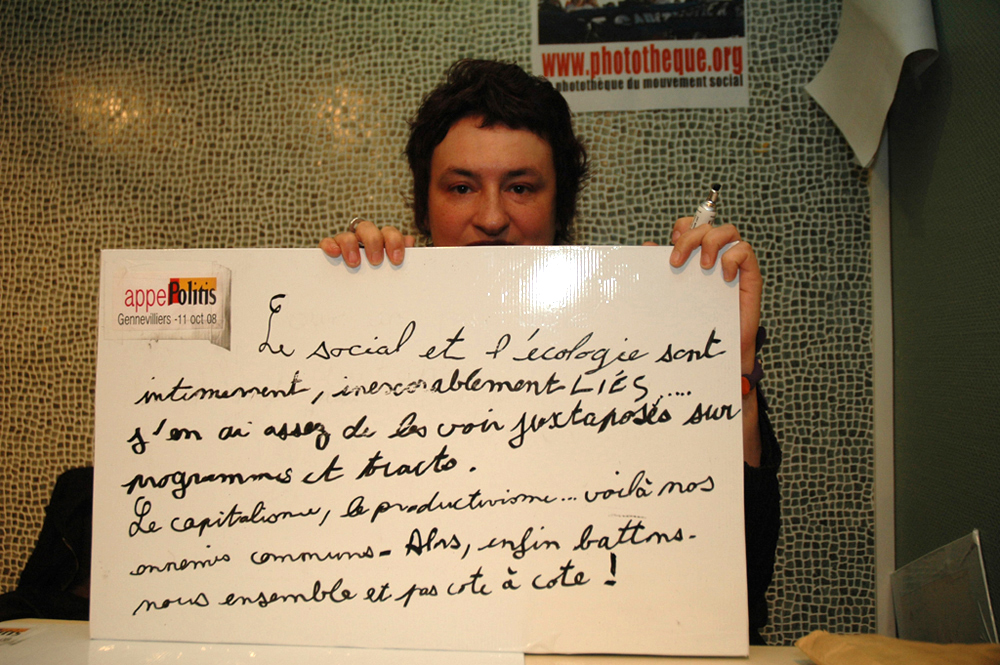 www.phototheque.org
photothèque du mouvement social
appel Politis
Gennevilliers -11 oct 08
Le social et l'écologie sont
intimement, inexorablement LIÉS,....
j'en ai assez de les voir juxtaposés sur
programmes et tracts.
Le capitalisme, le productivisme... voilà nos
ennemis communs - Alors, enfin battons-
nous ensemble et pas cote à cote !